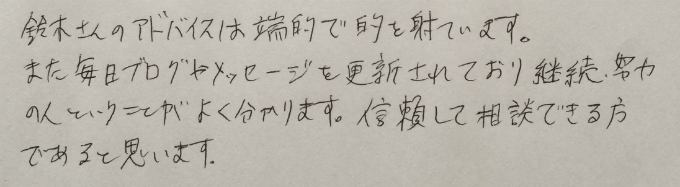 鈴木さんのアドバイスは端的で的を射ています。
また毎日ブログやメッセージを更新されており継続、努力
の人ということがよく分かります。信頼して相談できる方
であると思います。